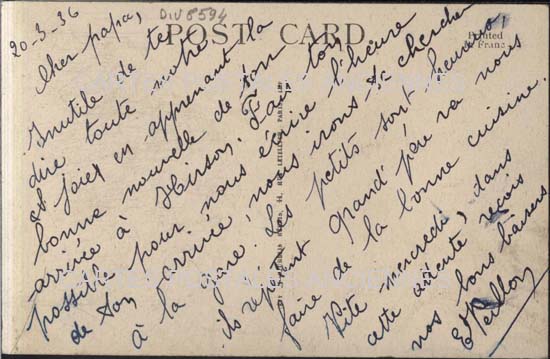 20-3-36
DIV8594
POST CARD
Printed
in France
Cher papa,
Inutile de te
dire toute notre
joie en apprenant la
bonne nouvelle de ton
arrivée à Hirson. Fais ton
possible pour nous écrire l'heure
de ton arrivée, nous irons te chercher
à la gare. Les petits sont heureux
ils répètent Grand père va nous
faire de la bonne cuisine.
Vite mercredi, dans
cette attente reçois
nos bons baisers